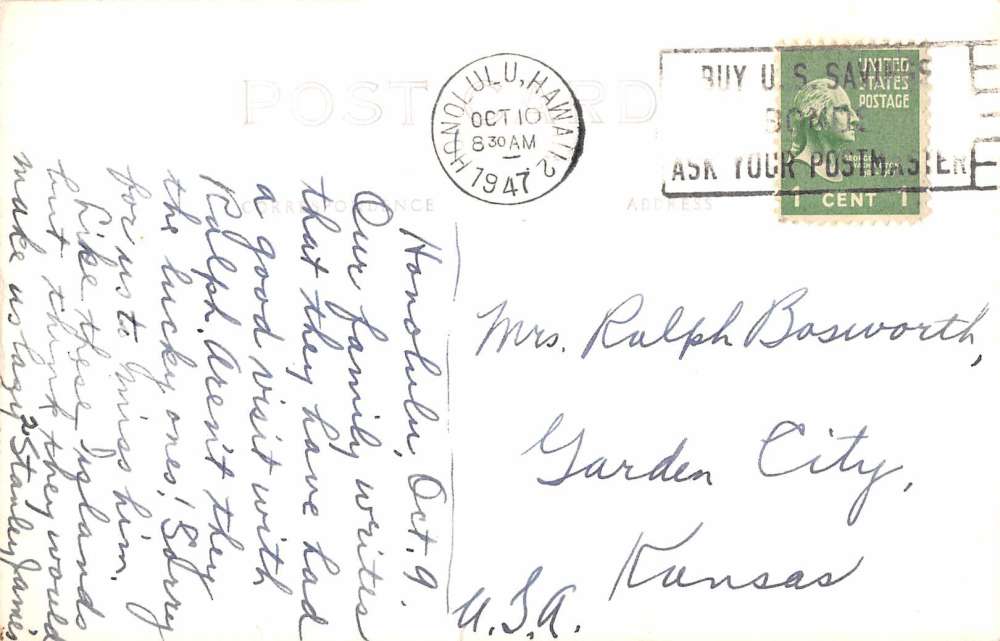 POST CARD
CORRESPONDENCE
ADDRESS
HONOLULU, HAWAII 2
OCT 10
8 30 AM
1947
BUY U.S. SAVINGS
BONDS
ASK YOUR POSTMASTER
UNITED
STATES
POSTAGE
GEORGE
WASHINGTON
1 CENT 1
Honolulu, Oct. 9.
Our family writes
that they have had
a good visit with
Ralph. Aren't they
the lucky ones! Sorry
for us to miss him.
Like these Islands
but think they would
make us lazy
Stanley James
Mrs. Ralph Bosworth,
Garden City,
Kansas
U.S.A.